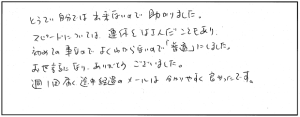 とうてい自分では出来ないので助かりました。
スピードについては、連休をはさんだこともあり、
初めての事なので よくわからないので「普通」にしました。
お世話になり、ありがとう ございました。
週1回届く途中経過のメールは 分かりやすく 良かったです。